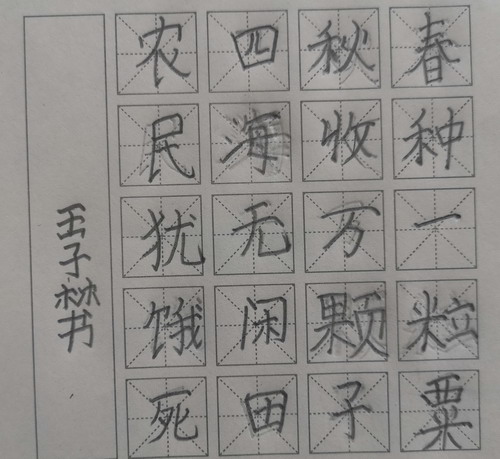 春种一粒粟
秋收万颗子
四海无闲田
农民犹饿死
王子林书